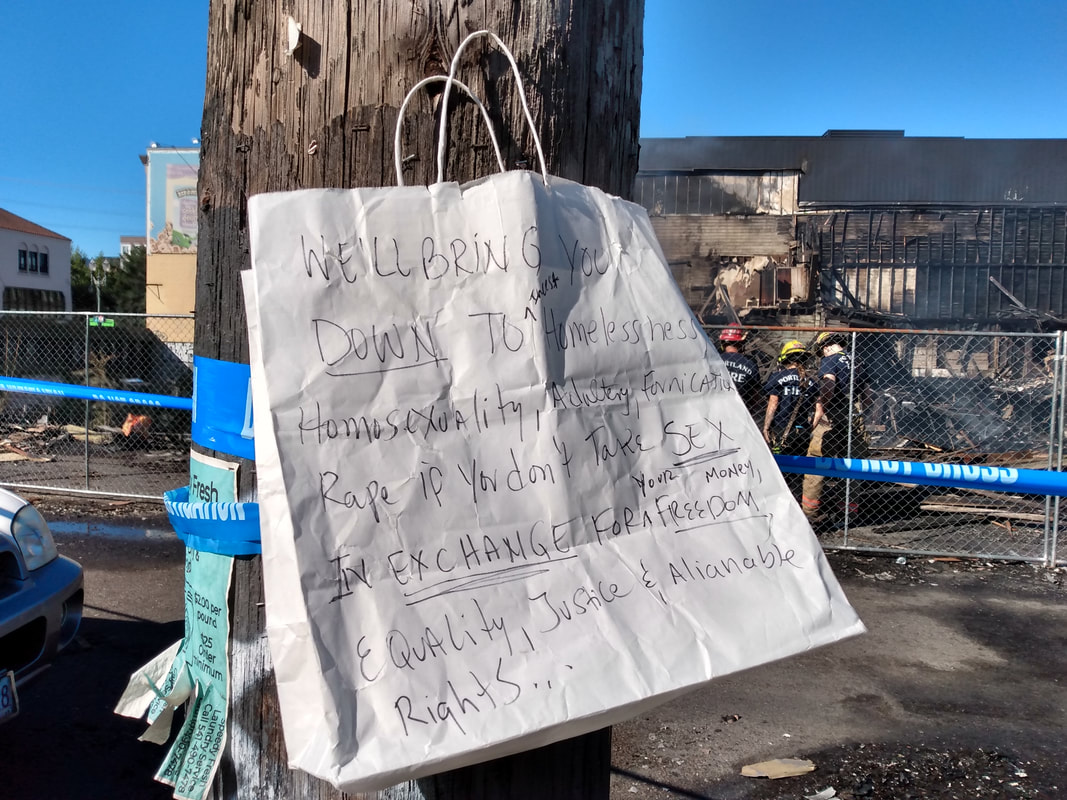 WE'LL BRING YOU
DOWN TO Homelessness,
Homosexuality, Adultery, Fornication
Rape if you don't Take SEX
IN EXCHANGE FOR A FREEDOM,
YOUR MONEY,
EQUALity, Justice &, Alianable
Rights...
Fresh
$2.00 per
pound
$25
Order
minimum
Laundry Service
PORTLAND
FIRE
PORTLAND
FIRE
DO NOT CROSS